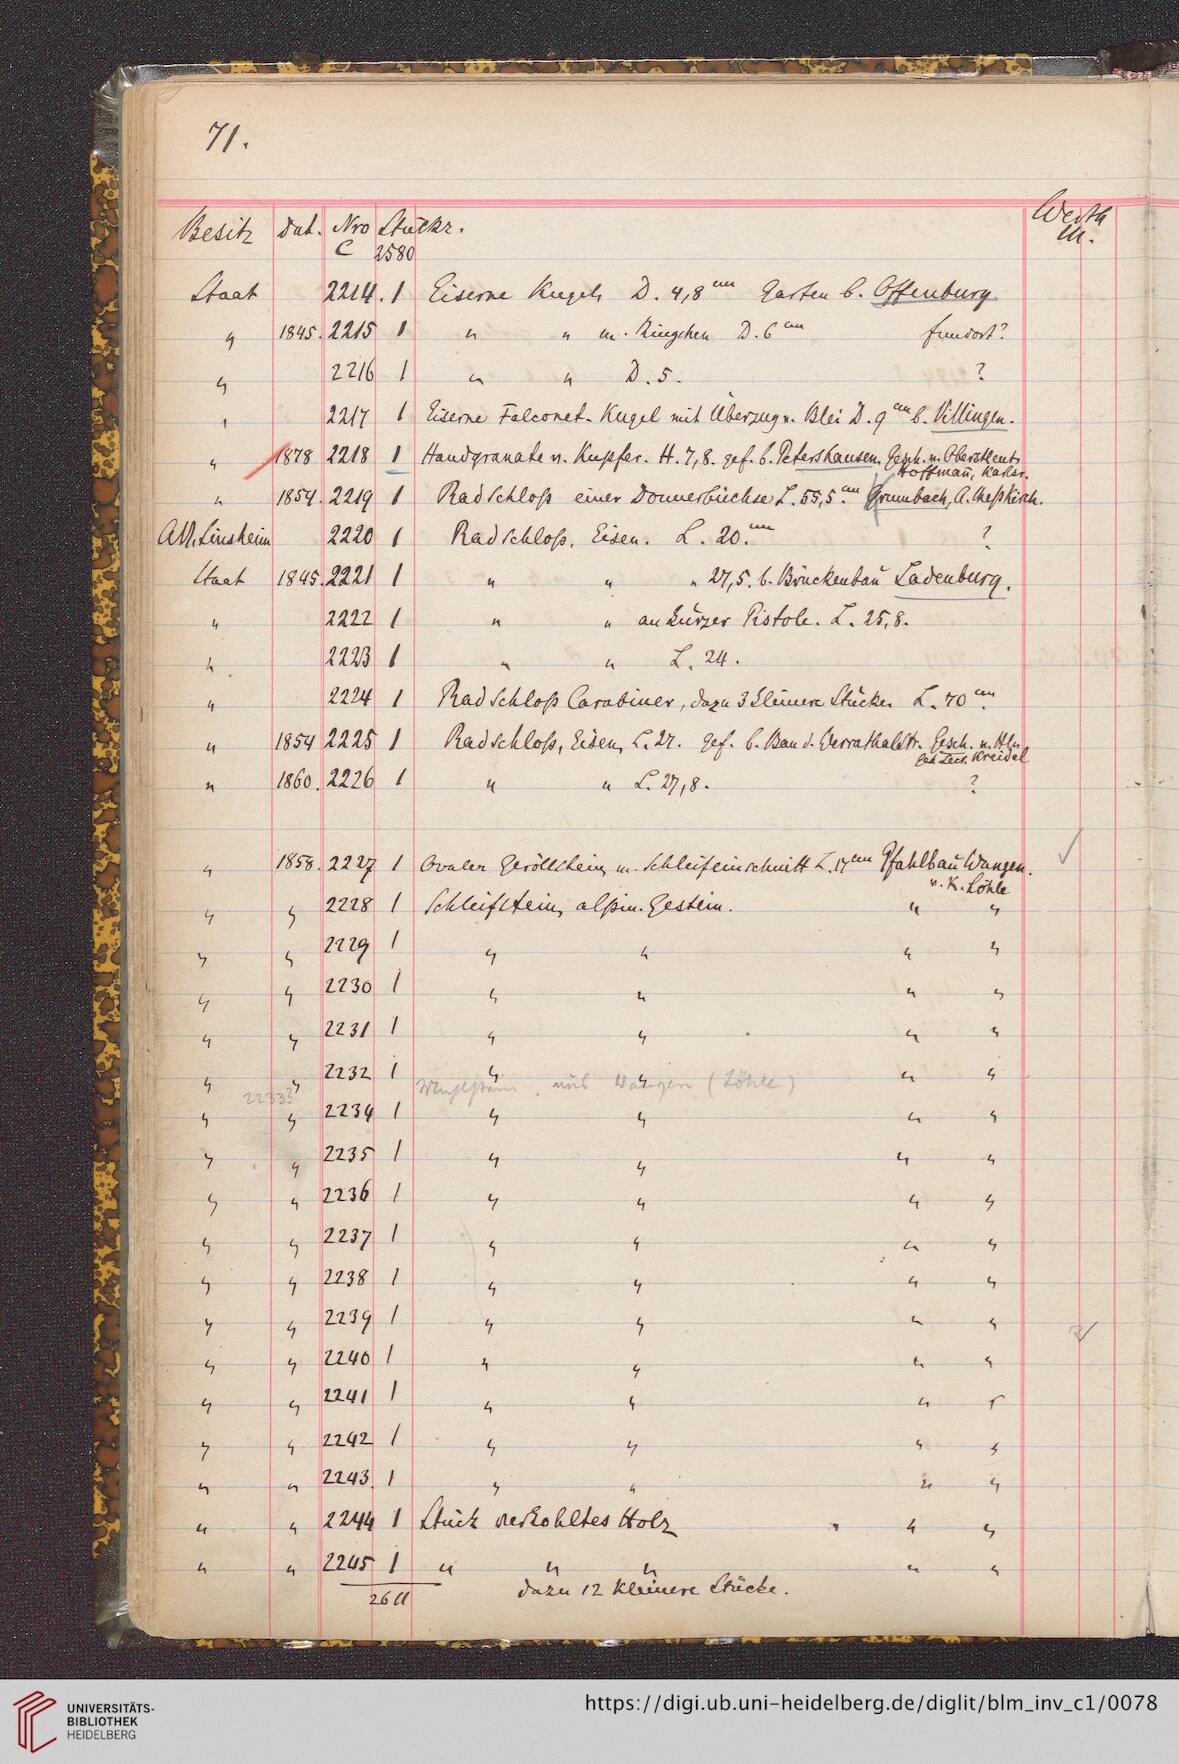 71.
Besitz Dat. Nro Stückz. Werth
C 2580 M.
Staat 2214. 1 Eiserne Kugel, D. 4,8 cm Garten b. Offenburg
" 1845. 2215 1 " " m. Ringchen D. 6 cm Fundort?
" 2216 1 " " D. 5. ?
" 2217 1 Eiserne Falconet-Kugel mit Überzug v. Blei D. 9 cm b. Villingen.
" 1878 2218 1 Handgranate v. Kupfer. H. 7,8. gef. b. Petershausen. Gesch. v. Oberstlieut.
Hoffmann, Karlsr.
" 1854. 2219 1 Radschloß einer Donnerbüchse L. 55,5. cm Grumbach, A. Meßkirch.
A.V. Sinsheim 2220 1 Radschloß, Eisen. L. 20. cm ?
Staat 1845. 2221 1 " " " 27,5. b. Brückenbau Ladenburg.
" 2222 1 " " an kurzer Pistole. L. 25,8.
" 2223 1 " " L. 24.
" 2224 1 Radschloß Carabiner, dazu 3 kleinere Stücke. L. 70 cm.
" 1854 2225 1 Radschloß, Eisen, L. 27. gef. b. Bau d. Werrathalstr. Gesch. v. Hln.
Kreidel
" 1860. 2226 1 " " L. 27,8. ?
" 1858. 2227 1 Ovaler Geröllstein, m. Schleifeinschnitt L. 17 cm Pfahlbau Wangen.
v. K. Löhle
" " 2228 1 Schleifstein, alpin. Gestein. " "
" " 2229 1 " " " "
" " 2230 1 " " " "
" " 2231 1 " " " "
" " 2232 1 " " " "
2233 aus Wangen (Löhle)
" " 2234 1 " " " "
" " 2235 1 " " " "
" " 2236 1 " " " "
" " 2237 1 " " " "
" " 2238 1 " " " "
" " 2239 1 " " " "
" " 2240 1 " " " "
" " 2241 1 " " " "
" " 2242 1 " " " "
" " 2243. 1 " " " "
" " 2244 1 Stück verkohltes Holz " "
" " 2245 1 " " " " "
2611 dazu 12 kleinere Stücke.
UNIVERSITÄTS-
BIBLIOTHEK
HEIDELBERG
https://digi.ub.uni-heidelberg.de/diglit/blm_inv_c1/0078